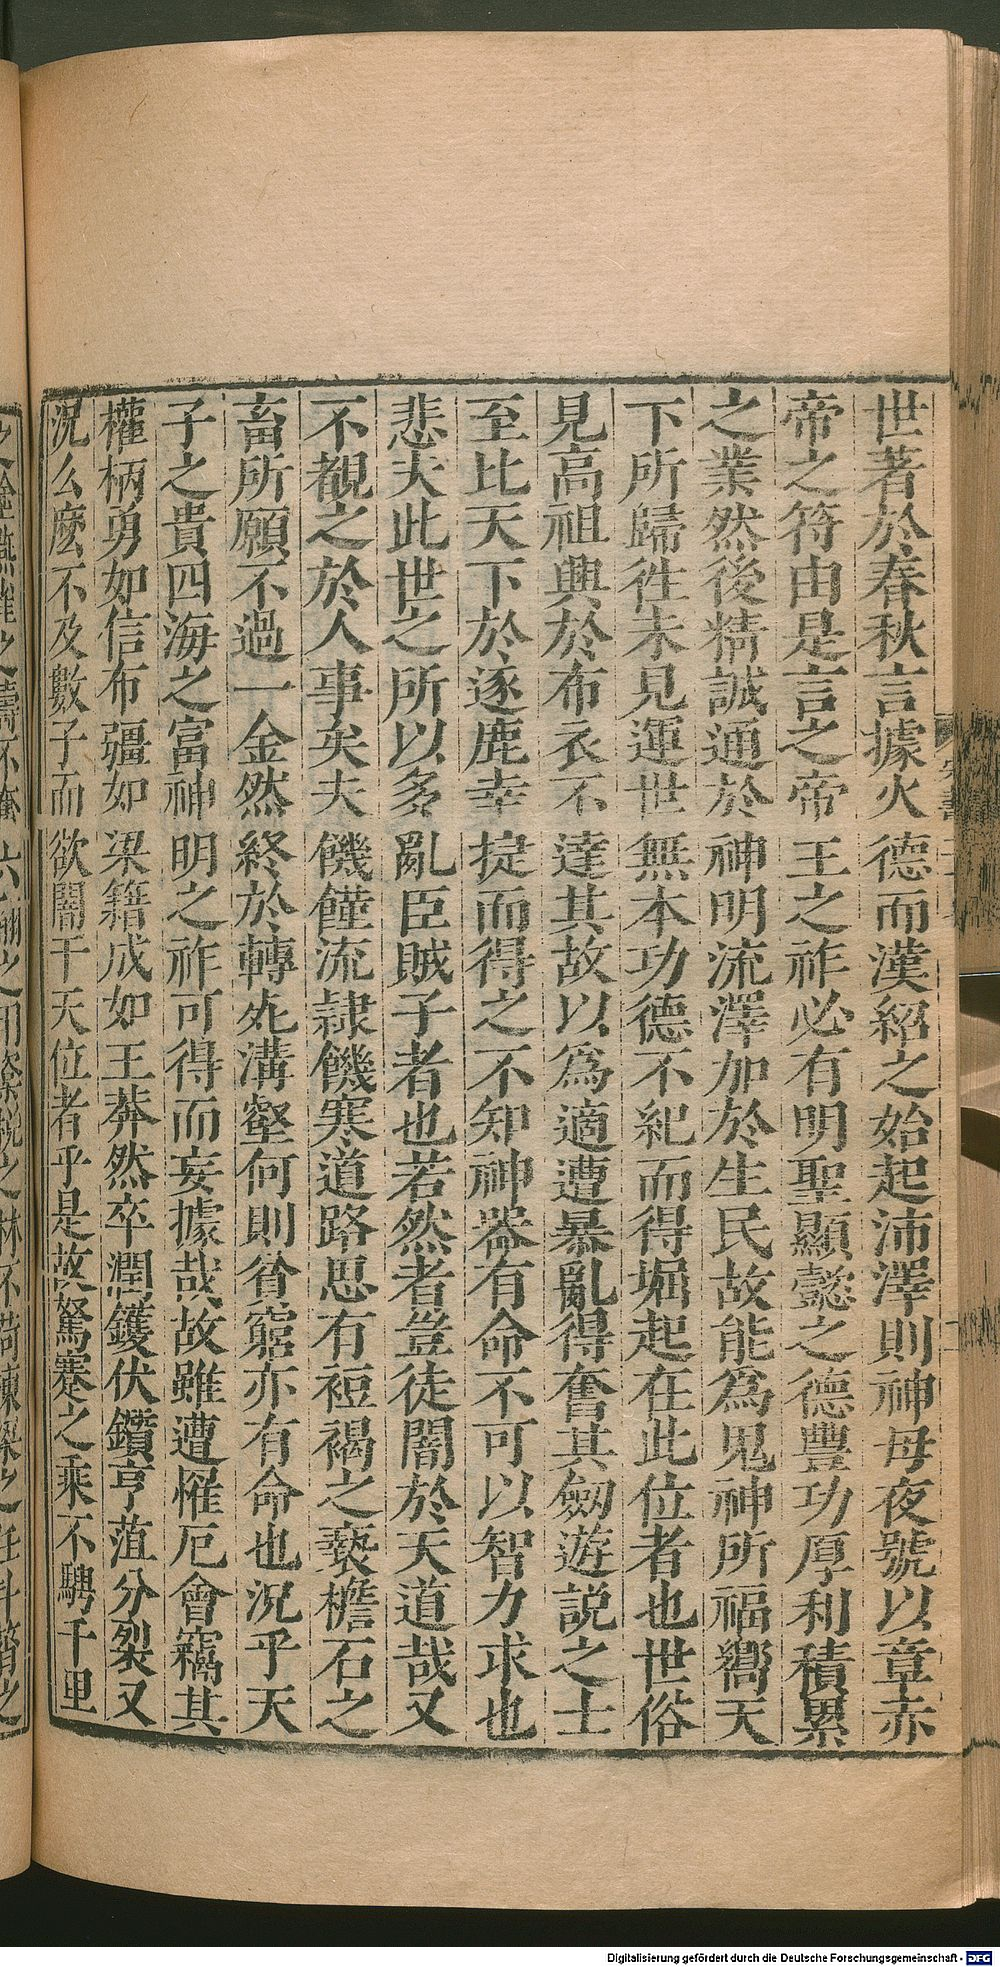 世著於春秋言據火德而漢紹之始起沛澤則神母夜號以章赤
帝之符由是言之帝王之祚必有明聖顯懿之德豐功厚利積累
之業然後精誠通於神明流澤加於生民故能為鬼神所福嚮天
下所歸往未見運世無本功德不紀而得堀起在此位者也世俗
見高祖興於布衣不達其故以為適遭暴亂得奮其劒遊説之士
至比天下於逐鹿幸掟而得之不知神器有命不可以智力求也
悲夫此世之所以多亂臣賊子者也若然者豈徒闇於天道哉又
不覩之於人事矣夫饑饉流隷饑寒道路思有裋褐之褻檐石之
畜所願不過一金然終於轉死溝壑何則貧窮亦有命也況乎天
子之貴四海之富神明之祚可得而妄據哉故雖遭罹厄會竊其
權柄勇如信布彊如梁籍成如王莽然卒潤鑊伏鑕亨菹分裂又
況么麼不及數子而欲闇干天位者乎是故駑蹇之乘不騁千里
Digitalisierung gefördert durch die Deutsche Forschungsgemeinschaft - DFG